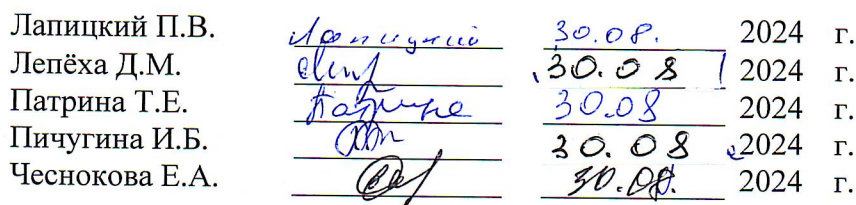 Лапицкий П.В. Лапицкий 30.08. 2024 г.
Лепёха Д.М. 30.08 2024 г.
Патрина Т.Е. Патрина 30.08 2024 г.
Пичугина И.Б. 30.08 2024 г.
Чеснокова Е.А. 30.08. 2024 г.